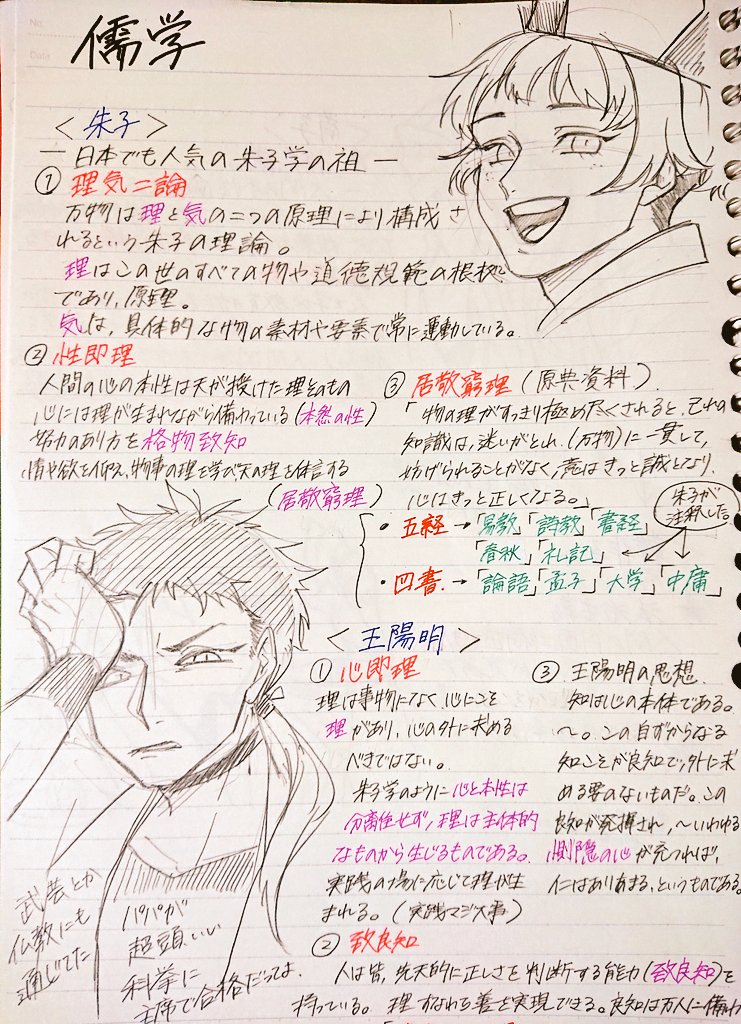 No.
Date
儒学
＜朱子＞
― 日本でも人気の朱子学の祖 ―
① 理気二論
万物は理と気の二つの原理により構成さ
れるという朱子の理論。
理はこの世のすべての物や道徳規範の根拠
であり、原理。
気は、具体的な物の素材や要素で常に運動している。
② 性即理
人間の心の本性は天が授けた理そのもの
心には理が生まれながら備わっている(本然の性)
努力のあり方を格物致知
情や欲を抑え、物事の理を学び天の理を体言する
(居敬窮理)
③ 居敬窮理(原典資料)
「物の理がすっきり極め尽くされると、己れの
知識は、迷いがとれ、(万物)に一貫して、
妨げられることがなく、意はきっと誠となり、
心はきっと正しくなる。」
朱子が
注釈した。
・五経→「易教」「詩教」「書経」
「春秋」「礼記」
・四書→「論語」「孟子」「大学」「中庸」
＜王陽明＞
① 心即理
理は事物になく、心にこそ
理があり、心の外に求める
べきではない。
朱子学のように心と本性は
分離任せず、理は主体的
なものから生じるものである。
実践の場に応じて理が生
まれる。(実践マジ大事)
③ 王陽明の思想
知は心の本体である。
～。この自ずからなる
知こそが良知で、外に求
める要のないものだ。この
良知が発揮され、～いわゆる
惻隠の心が充つれば、
仁はありあまる、というものである。
② 致良知
人は皆、先天的に正しさを判断する能力(致良知)を
持っている。理すなわち善を実現できる。良知は万人に備わ
武芸とか
仏教にも
通じてた
パパが
超頭いい
科挙に
主席で合格だってよ